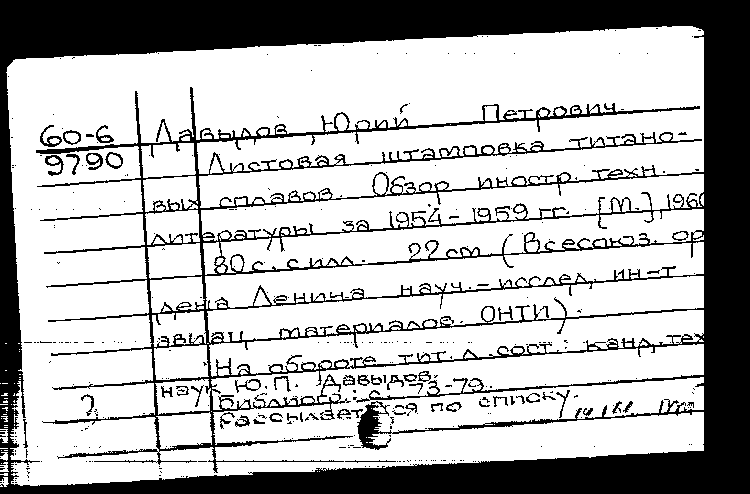 60-6
9790
Давыдов, Юрий Петрович.
Листовая штамповка титано-
вых сплавов. Обзор иностр. техн.
литературы за 1954-1959 гг. [М.], 1960
80 с. с илл. 22 см. (Всесоюз. ор
дена Ленина науч.-исслед. ин-т
авиац. материалов. ОНТИ).
На обороте тит. л. сост.: канд. тех
наук Ю.П. Давыдов.
Библиогр.: с. 73-79.
Рассылается по списку.